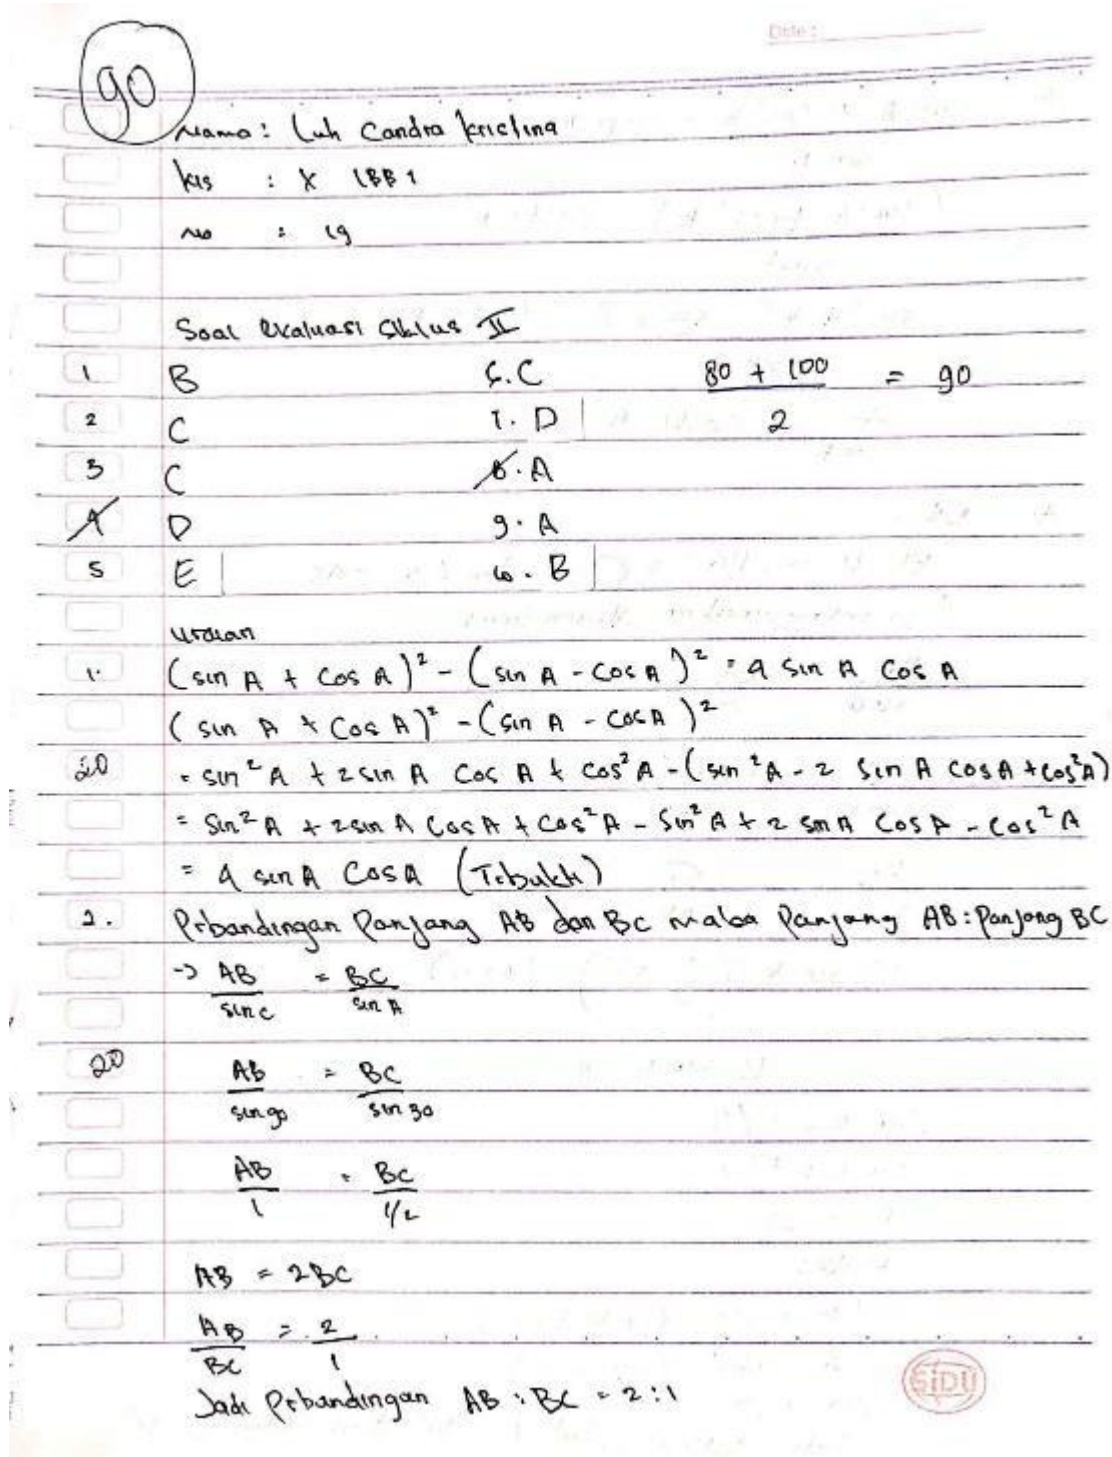 Date:
90
Nama: Luh Candra Kristina
kls : X IBB 1
no : 19
Soal Evaluasi Siklus II
1 B 6. C 80 + 100 = 90
2 C 7. D 2
3 C 8. A
4 D 9. A
5 E 10. B
uraian
1. (sin A + cos A)² - (sin A - cos A)² = 4 sin A cos A
(sin A + cos A)² - (sin A - cos A)²
20 = sin² A + 2 sin A cos A + cos² A - (sin² A - 2 sin A cos A + cos² A)
= sin² A + 2 sin A cos A + cos² A - sin² A + 2 sin A cos A - cos² A
= 4 sin A cos A (Trbukti)
2. Prbandingan Panjang AB dan BC maka Panjang AB : Panjang BC
-> AB = BC
sin C sin A
20 AB = BC
sin 90 sin 30
AB = BC
1 1/2
AB = 2BC
AB = 2
BC 1
Jadi Prbandingan AB : BC = 2 : 1
SiDU